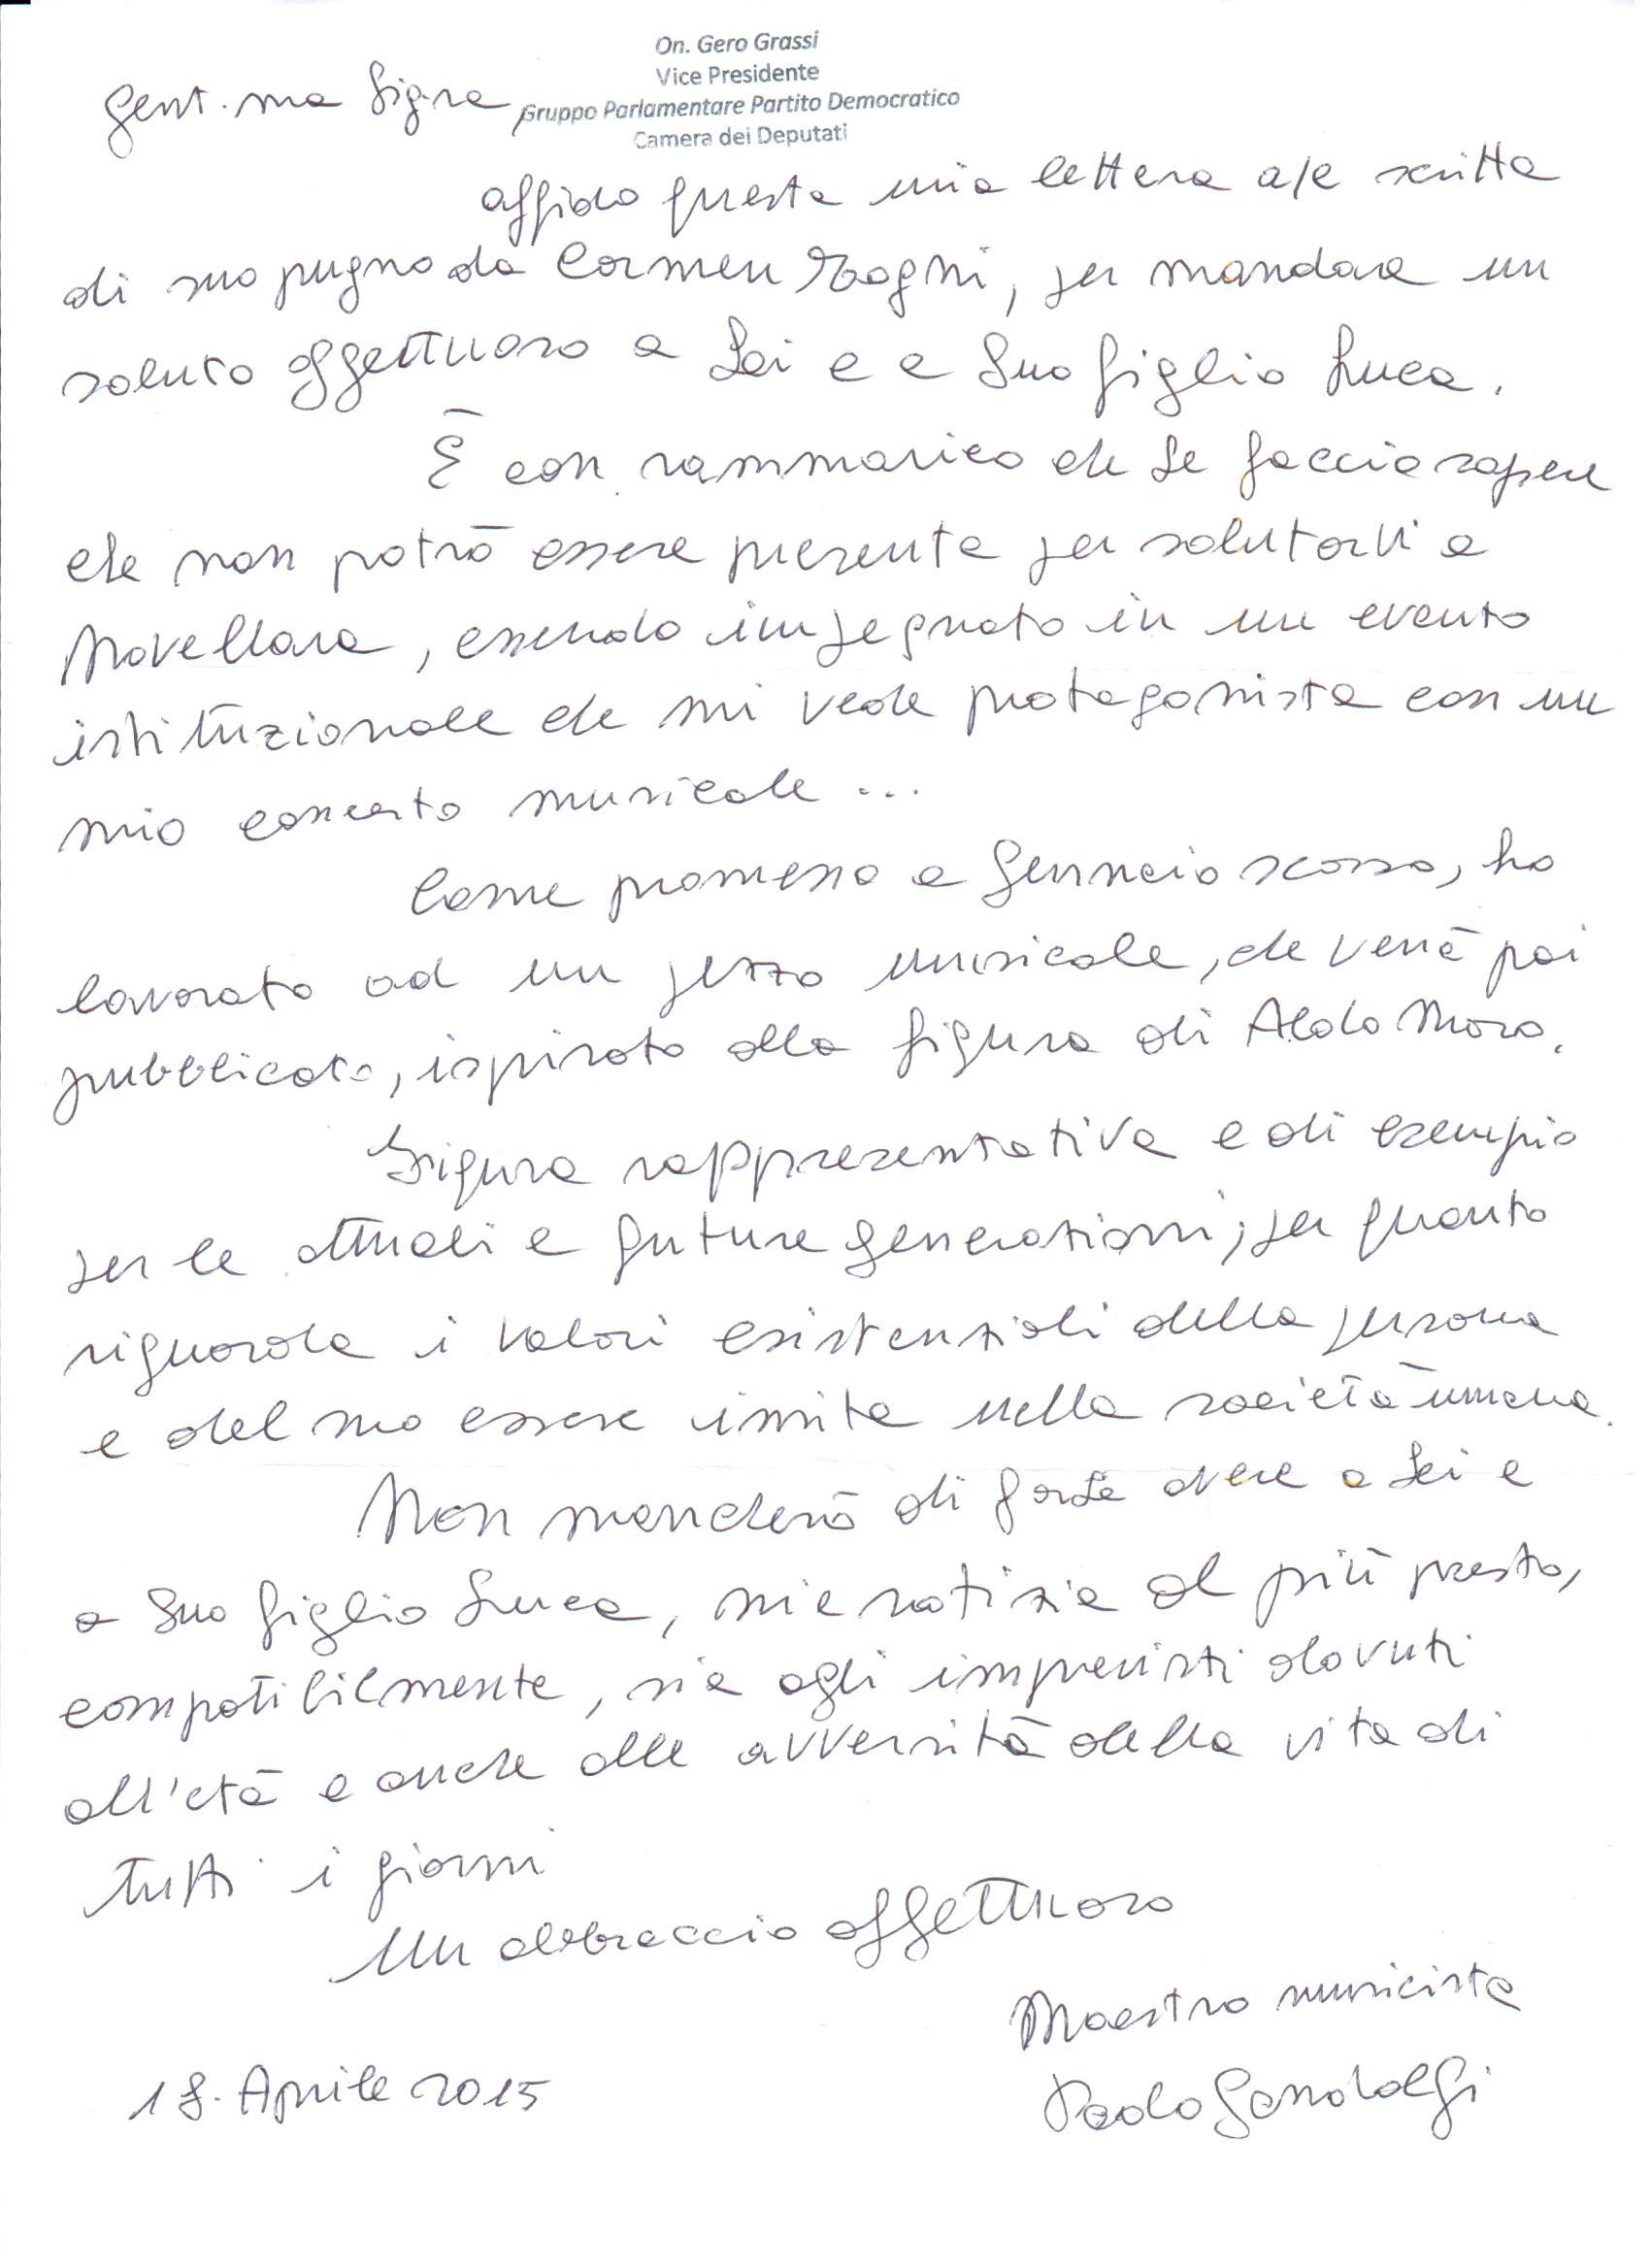 On. Gero Grassi
Vice Presidente
Gruppo Parlamentare Partito Democratico
Camera dei Deputati
Gent.ma Sig.ra,
affido questa mia lettera a/e scritta
di suo pugno da Carmen Togni, per mandare un
saluto affettuoso a Lei e a Suo figlio Luca.
È con rammarico che Le faccio sapere
che non potrò essere presente per salutarVi a
Novellara, essendo impegnato in un evento
istituzionale che mi vede protagonista con un
mio concerto musicale ...
Come promesso a Gennaio scorso, ho
lavorato ad un pezzo musicale, che verrà poi
pubblicato, ispirato alla figura di Aldo Moro.
Figura rappresentativa e di esempio
per le attuali e future generazioni; per quanto
riguarda i valori esistenziali della persona
e del suo essere insita nella società umana.
Non mancherò di farLe avere a Lei e
a Suo figlio Luca, mie notizie al più presto,
compatibilmente, sia agli imprevisti dovuti
all'età e anche alle avversità della vita di
tutti i giorni
Un abbraccio affettuoso
Maestro musicista
Paolo Gandolfi
18. Aprile 2015